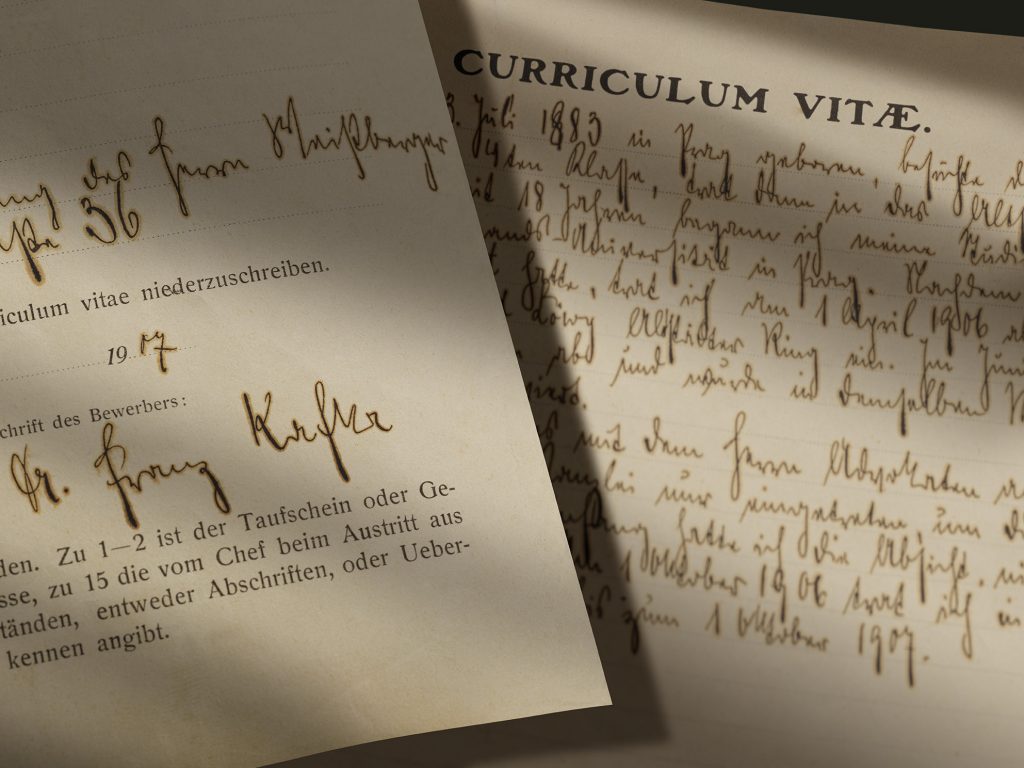 des Herrn Weißberger
36
iculum vitae niederzuschreiben.
19 07
schrift des Bewerbers:
Dr. Franz Kafka
den. Zu 1—2 ist der Taufschein oder Ge-
sse, zu 15 die vom Chef beim Austritt aus
tänden, entweder Abschriften, oder Ueber-
kennen angibt.
CURRICULUM VITÆ.
3. Juli 1883 in Prag geboren, besuchte d
4ten Klasse, trat dann in das
it 18 Jahren begann ich meine Studi
Universität in Prag. Nachdem
hatte, trat ich am 1 April 1906
Löwy Altstädter Ring ein. Im Juni
ab und wurde in demselben M
viert.
mit dem Herrn Advokaten
Kanzlei nur eingetreten, um d
fang hatte ich die Absicht,
1 Oktober 1906 trat ich in
bis zum 1 Oktober 1907.